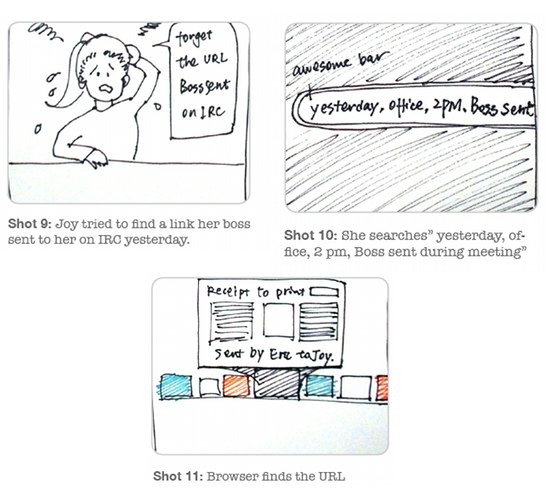 forget
the URL
Boss sent
on IRC
Shot 9: Joy tried to find a link her boss
sent to her on IRC yesterday.
awesome bar
yesterday, office, 2PM, Boss sent
Shot 10: She searches” yesterday, of-
fice, 2 pm, Boss sent during meeting”
Receipt to print
Sent by Eric to Joy.
Shot 11: Browser finds the URL